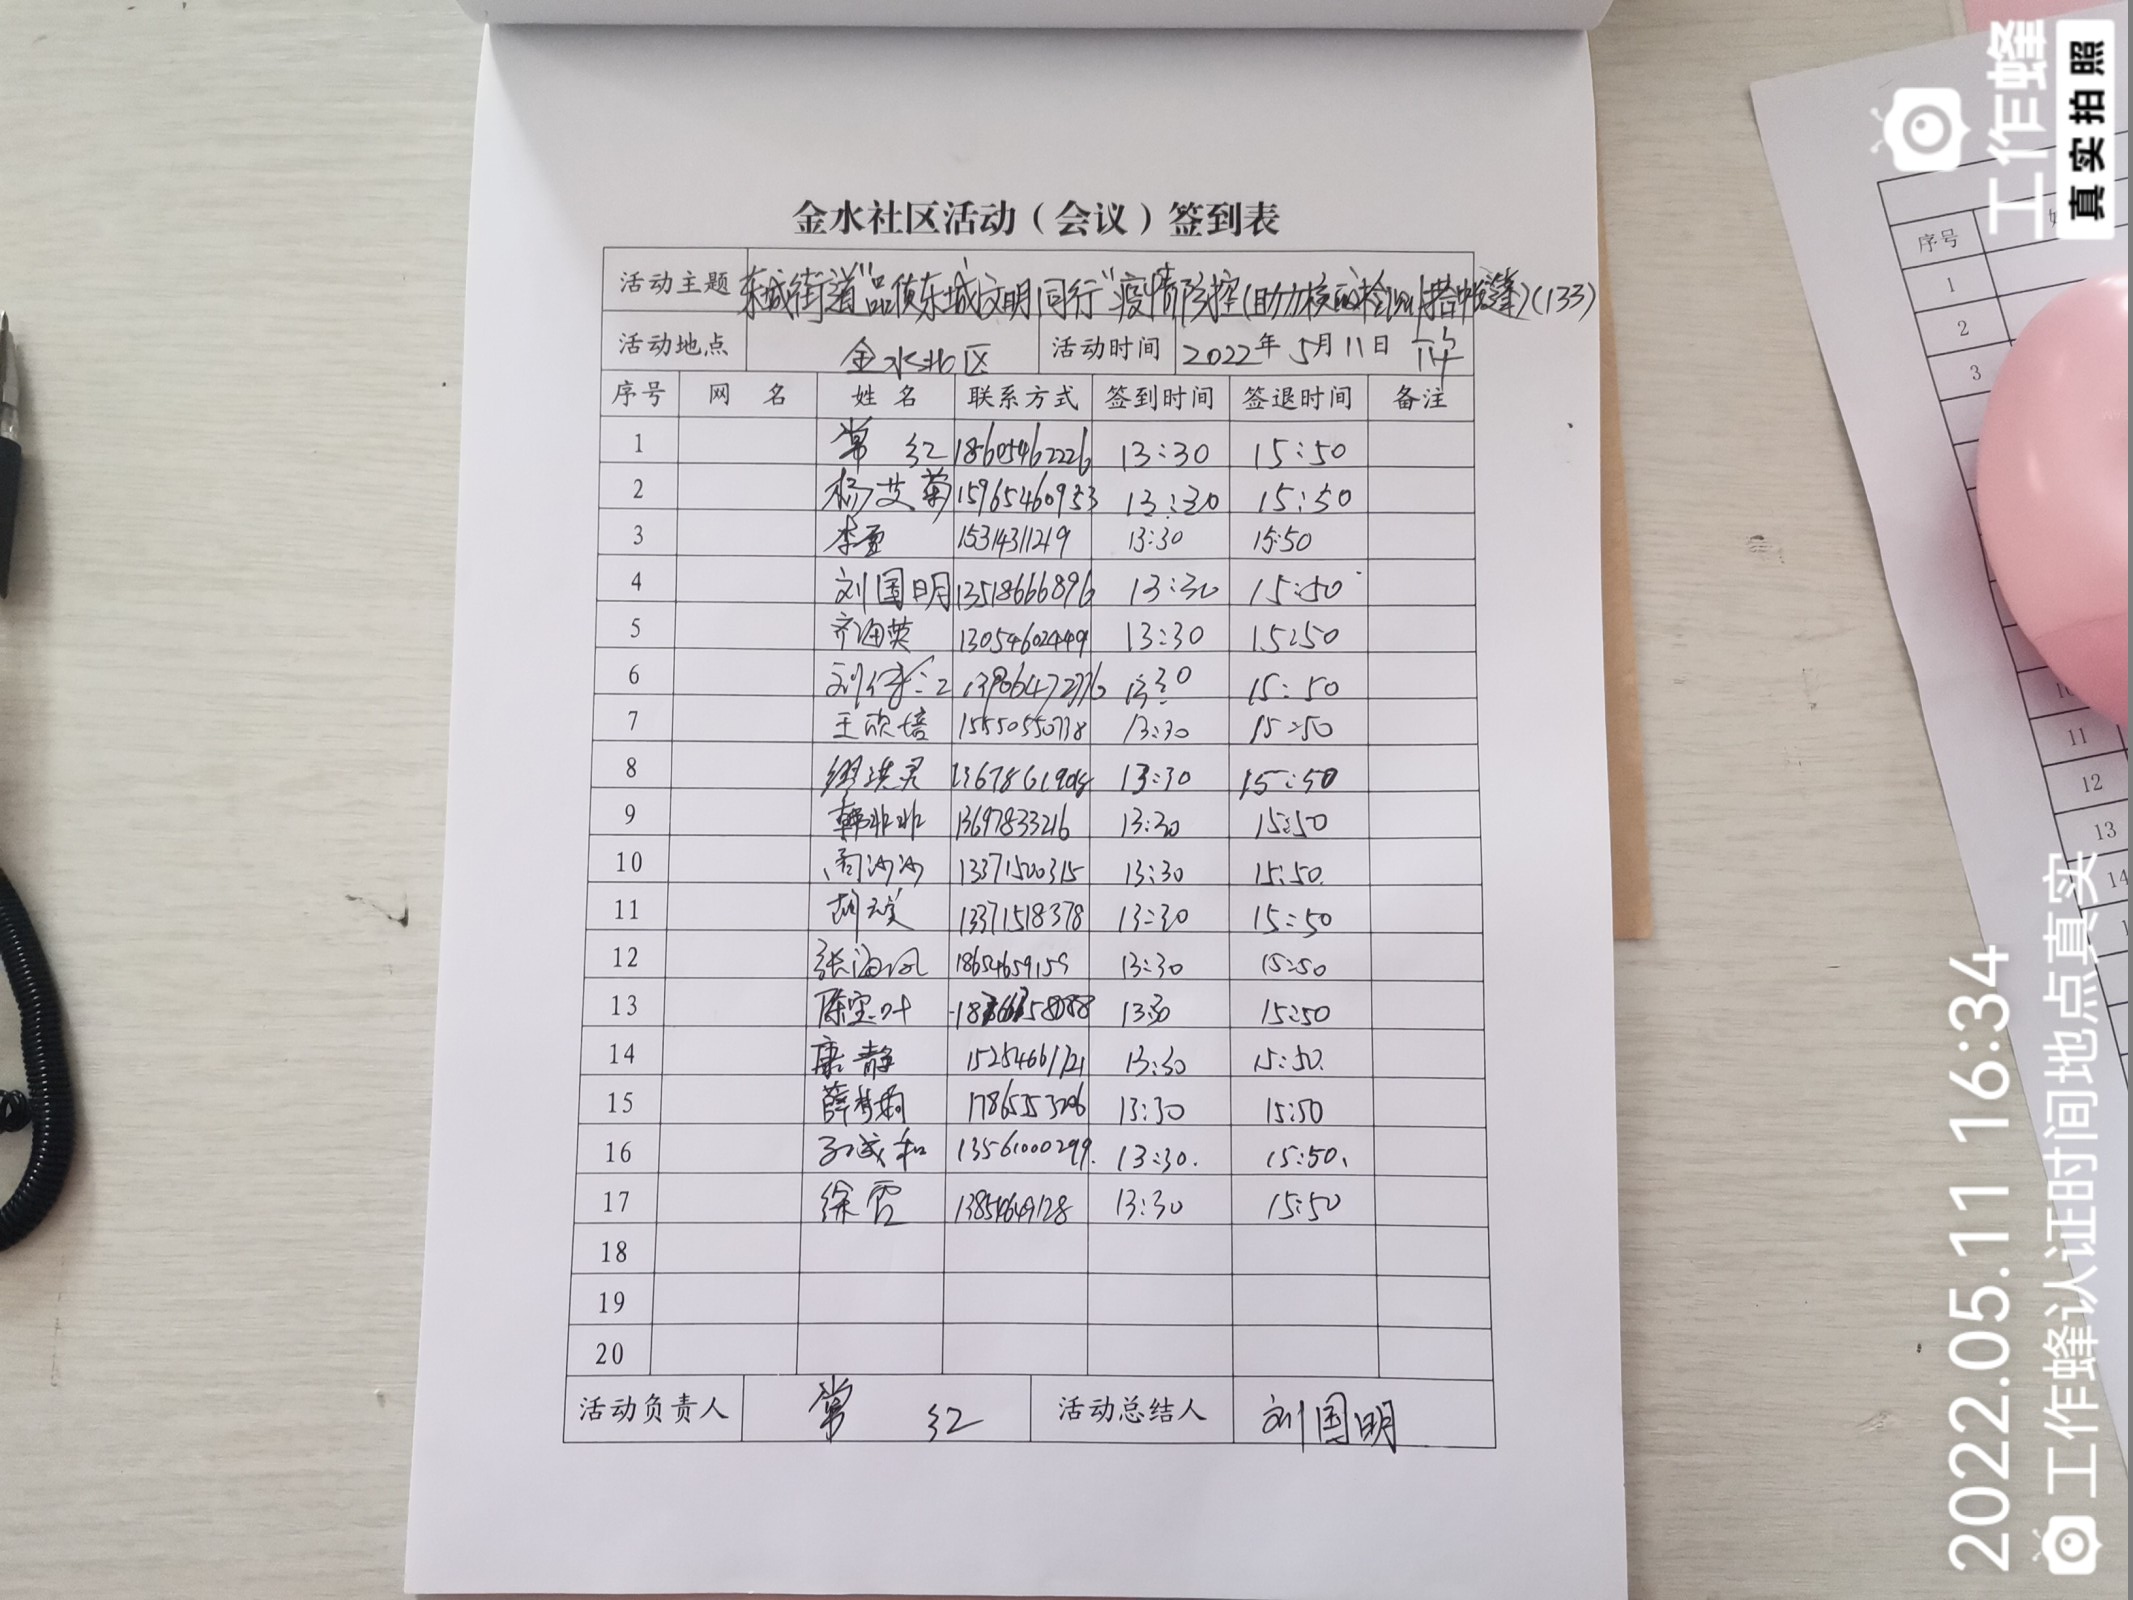 金水社区活动（会议）签到表
活动主题 东城街道"品质东城文明同行"疫情防控(助力核酸检测搭帐篷)(133)
活动地点 金水北区 活动时间 2022年5月11日 下午
序号 网 名 姓 名 联系方式 签到时间 签退时间 备注
1 常 红 18605462226 13:30 15:50
2 杨艾菊 15965460953 13:30 15:50
3 15314311219 13:30 15:50
4 刘国明 13518666896 13:30 15:50
5 齐海英 13054602449 13:30 15:50
6 13:30 15:50
7 王欣培 15550550738 13:30 15:50
8 13:30 15:50
9 韩非非 13697833216 13:30 15:50
10 周沙沙 13371500315 13:30 15:50.
11 13371518378 13:30 15:50
12 张海风 18654659159 13:30 15:50
13 13:30 15:50
14 康静 15254661721 13:30 15:50.
15 薛梦娟 13:30 15:50
16 孙成和 13561000299. 13:30. 15:50.
17 徐霞 13854649128 13:30 15:50
18
19
20
活动负责人 常 红 活动总结人 刘国明
序号
1
2
3
11
12
13
14
工作蜂
真实拍照
2022.05.11 16:34
工作蜂认证时间地点真实